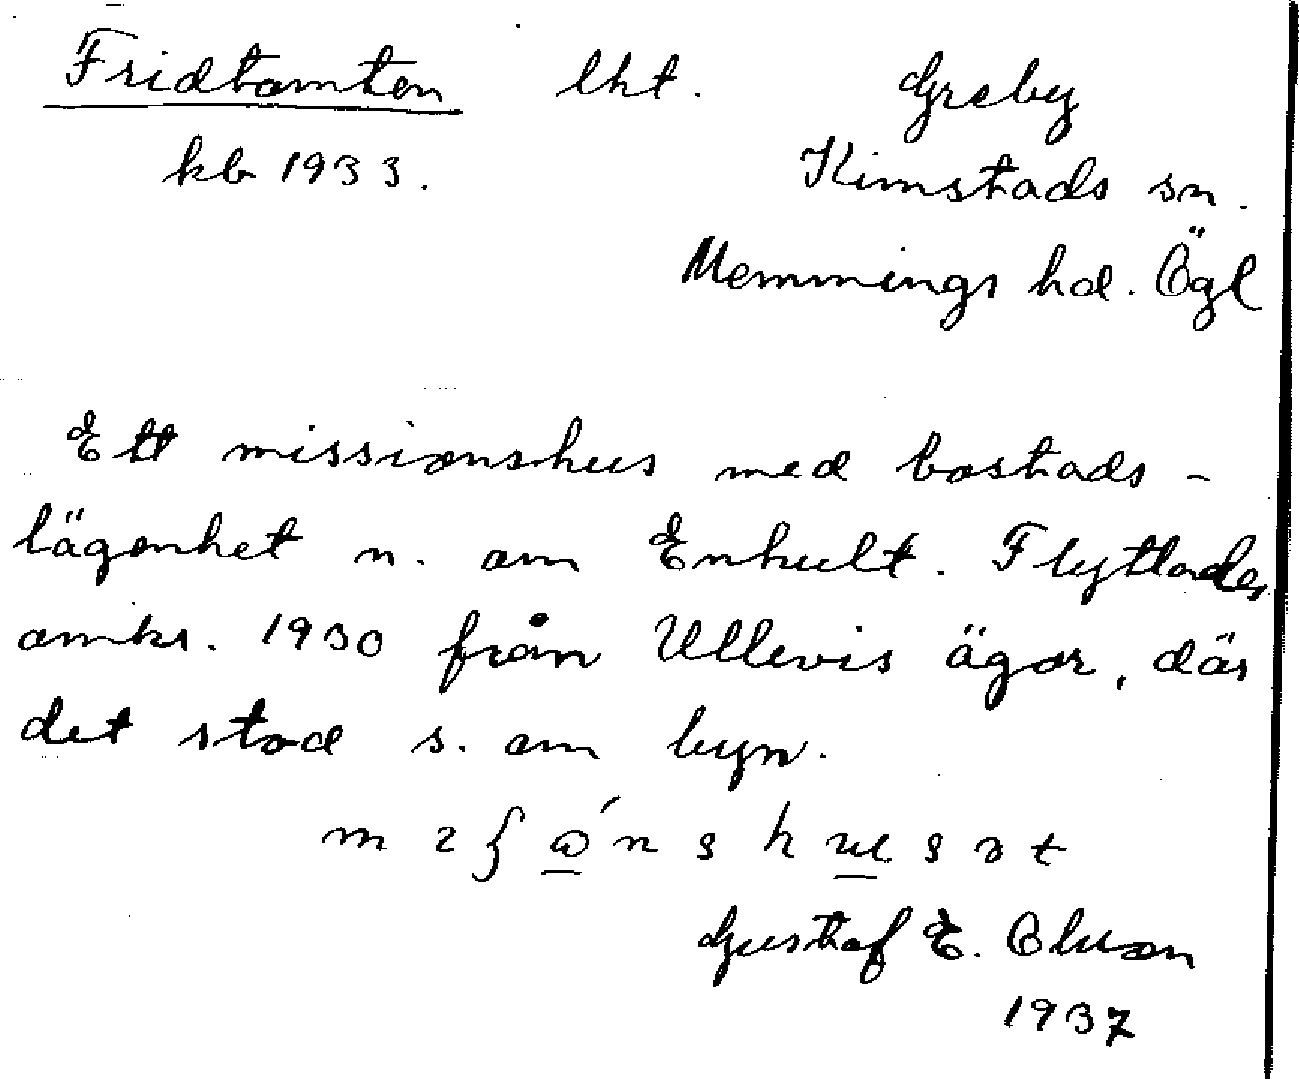 Fridtomten lht. Greby
kb 1933. Kimstads sn.
Memmings hd. Ögl
Ett missionshus med bostads-
lägenhet n. om Enhult. Flyttades
omkr. 1930 från Ullevis ägor, där
det stod s. om byn.
Gustaf E. Olsson
1937